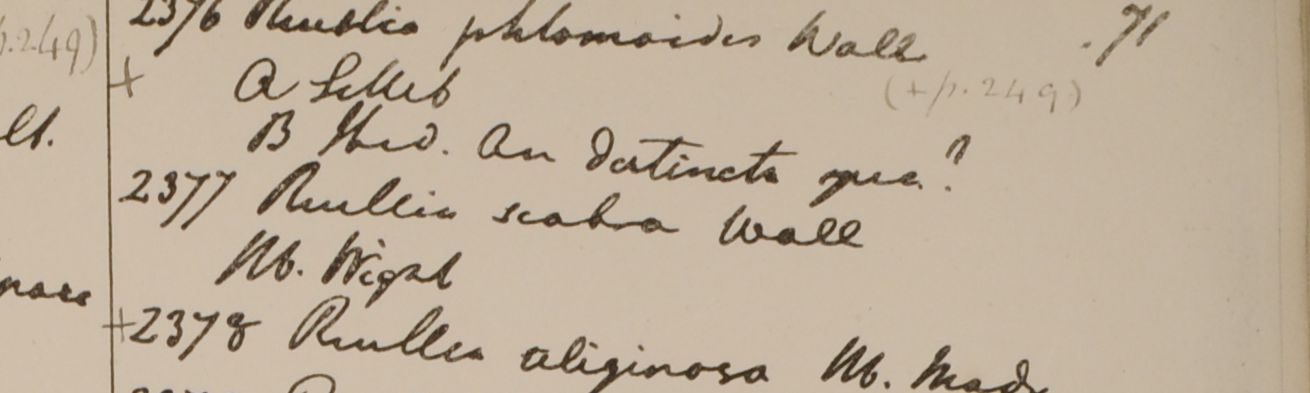 2376 Ruellia phlomoides Wall .71
p.249) + A Sillet (+p.249)
lt. B Hed. An distincta spec?
2377 Ruellia scabra Wall
Hb. Wight
+2378 Ruellia aliginosa Hb. Madr